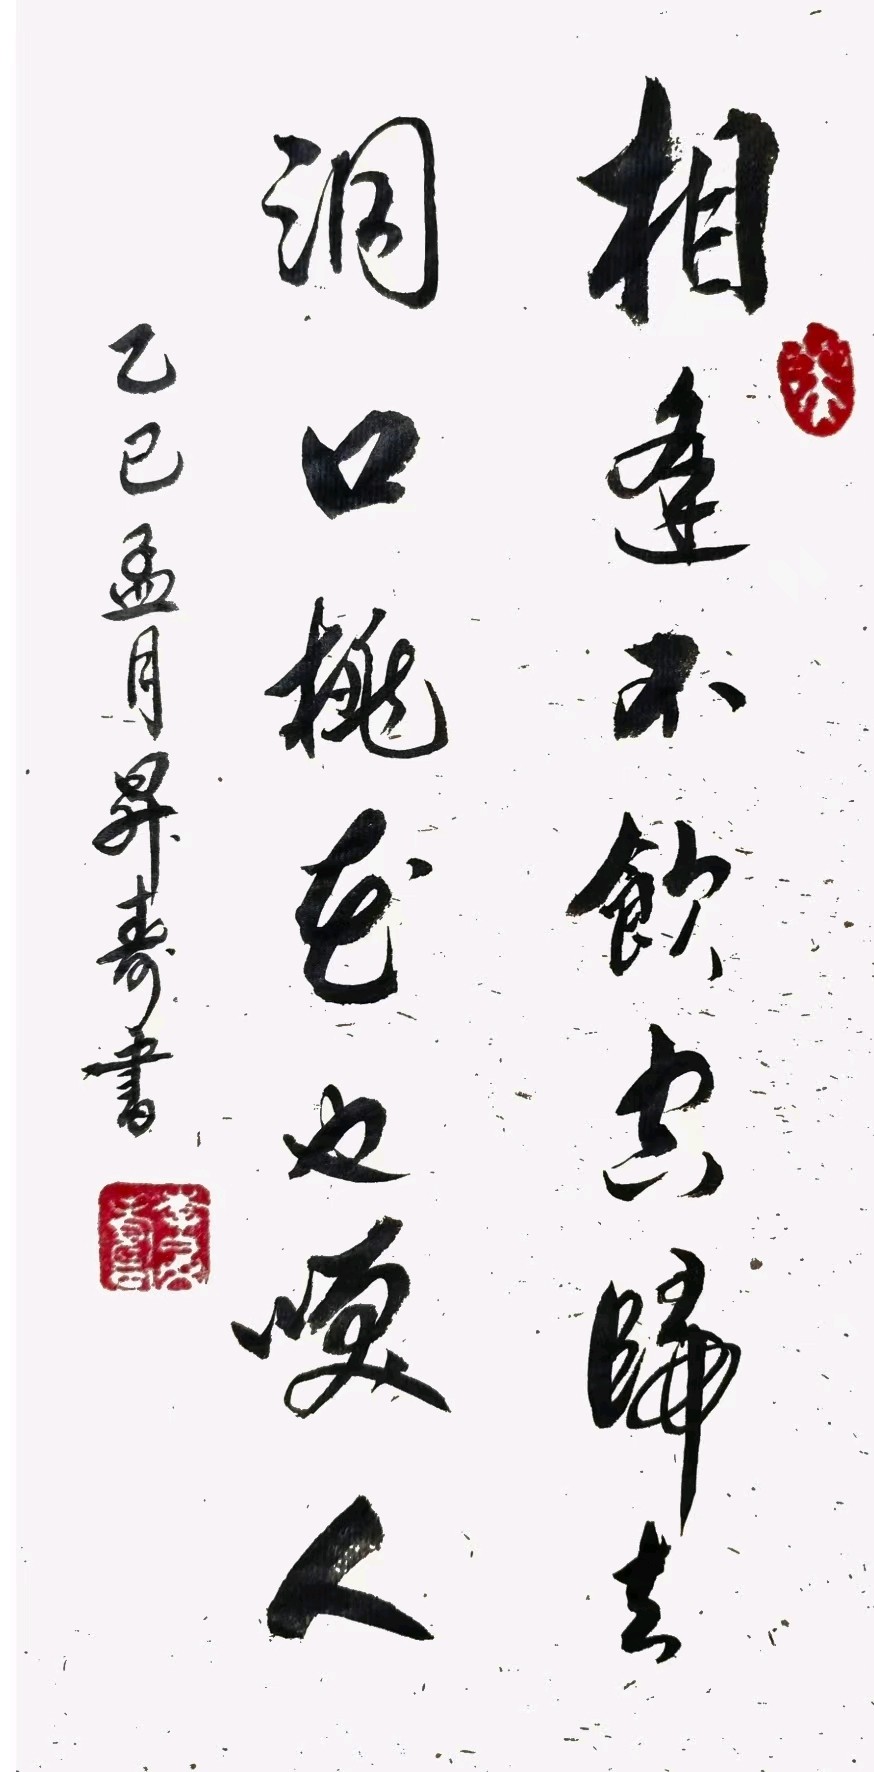 相逢不飲空歸去
洞口桃花也咲人
乙巳孟月昇壽書